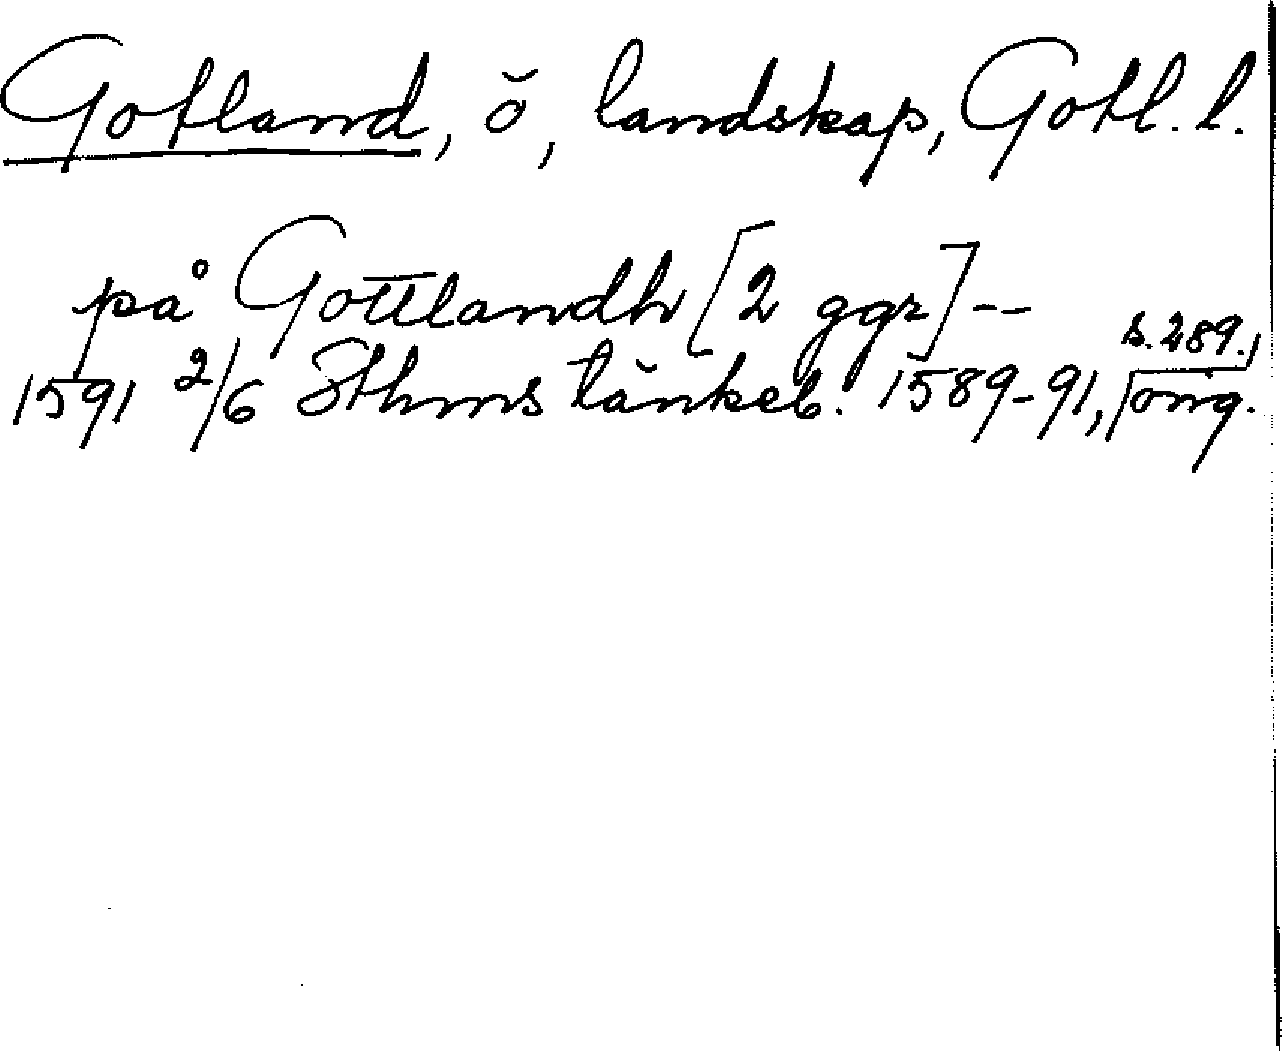 Gotland, ö, landskap, Gotl. l.
på Gottlandh [2 ggr] --
1591 2/6 Sthms tänkeb. 1589-91, s. 289. orig.